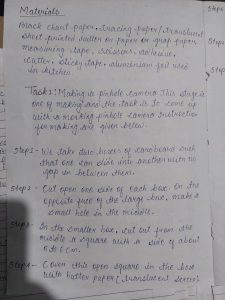 Materials
Black chart paper, tracing paper/translucent
sheet printed pattern on paper or graph paper,
measuring tape, scissors, adhesive,
cutter, sticky tape, aluminium foil used
in kitchen
Task1: Making a pinhole camera This stage is
one of making and the task is to come up
with a working pinhole camera Instruction
for making are given below.
Step1 - We take two boxes of cardboard such
that one can slide into another with no
gap in between them.
Step2 - Cut open one side of each box. On the
opposite face of the large box, make a
small hole in the middle.
Step3 - In the smaller box, cut out from the
middle a square with a side of about
5 to 6 cm.
Step4 - Cover this open square in the box
with butter paper (translucent screen)
Step
Step